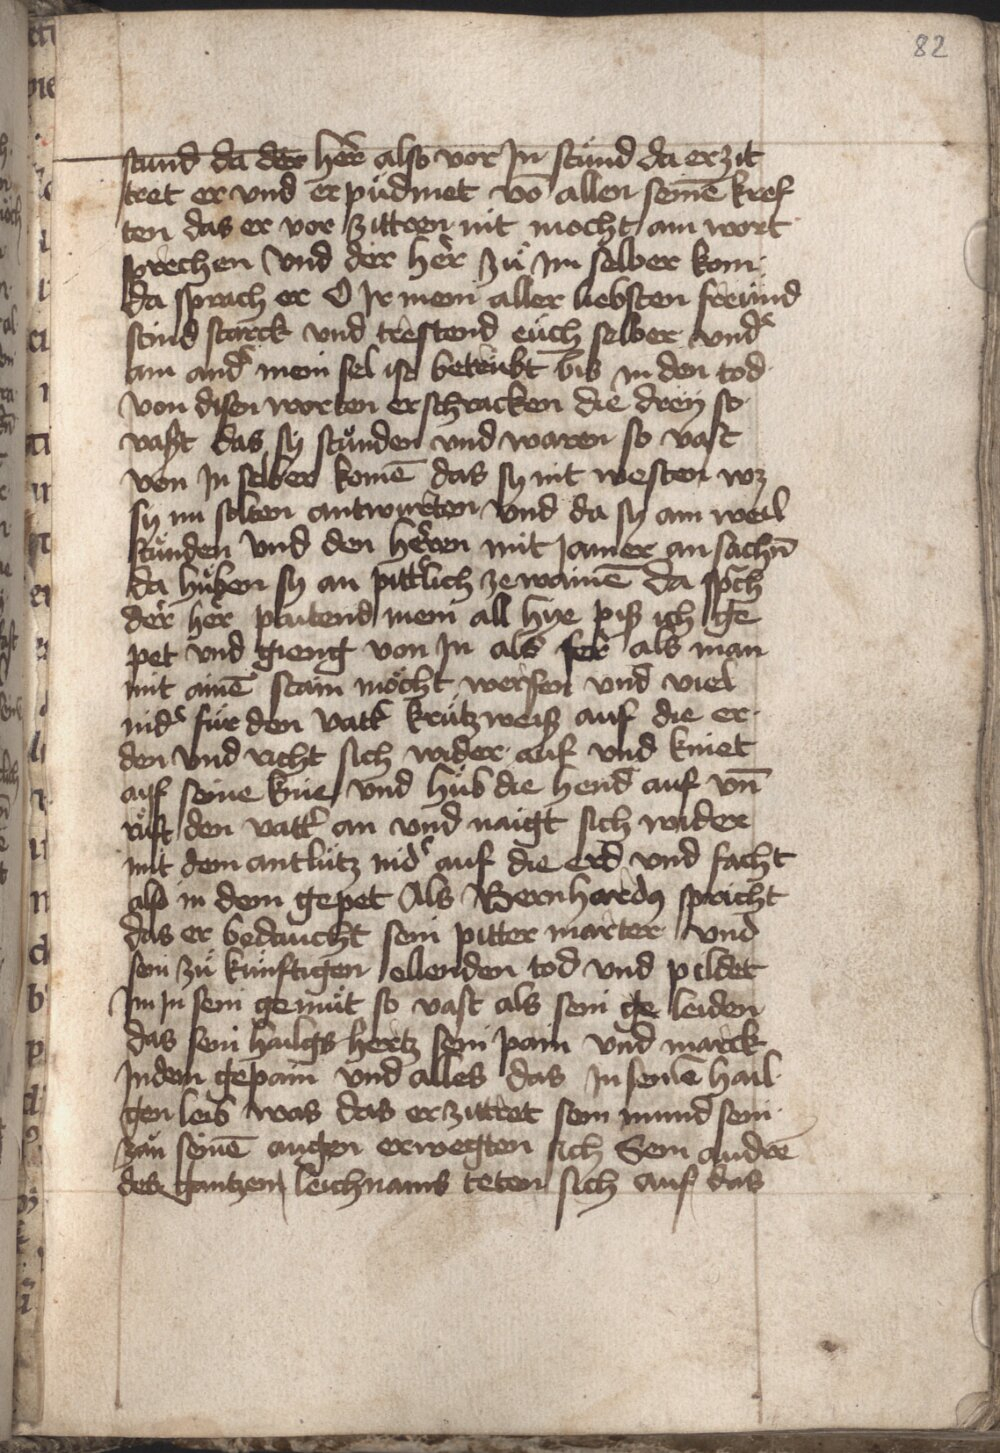 82
stund da der her̄ also vor Jn stu̇nd da er zit
tret er vnd er pu̇dmet vō allen seinē kref
ten das er vor zittren nit mocht ain wort
sprechen Vnd der her̄ zu̇ Jm selber kom
da sprach er O Jr mein aller liebsten freu̇nd
sind starck vnd trestend eu̇ch selber vndʾ
ain andʾ mein sel ist betru̇bt bis in den tod
von disen worten erschracken die dreÿ so
vaßt das sÿ stu̇nden vnd waren so vast
von Jn selber komē das sÿ nit westen wz
sÿ im solten antwurten Vnd da sÿ ain weil
stu̇nden Vnd den her̄ren mit Jamer an sachn̄
da hu̇ben sÿ an pittʾlich ze wainē da sp̄ch
der her̄ peitend mein all hye piß ich ge
pet vnd gieng von Jn als fer als man
mit ainē stain mo̎cht werfen vnd viel
nidʾ fu̇r den vattʾ kru̇tzweiß auf die er
den Vnd richt sich wider auf vnd kniet
auf seine knie vnd hu̇b die hend auf vn̄
ru̇ft den vattʾ an vnd naigt sich wider
mit dem antlu̇tz nidʾ auf die erd vnd facht
also in dem gepet Als Bernhardꝰ spricht
das er bedaucht sein pitter marter Vnd
sein zu̇ ku̇nftigen ellenden tod vnd pildet
Jm Jn sein gemu̇t so vast als sein ge leiden
das sein hailgs hertz sein pain vnd marck
Jn dem gepain vnd alles das Jn seinē hail
gen leib was das er zittret sein mund sein
zän seinē augen erwegten sich Sein andrē
des gantzen leichnams teten sich auf das